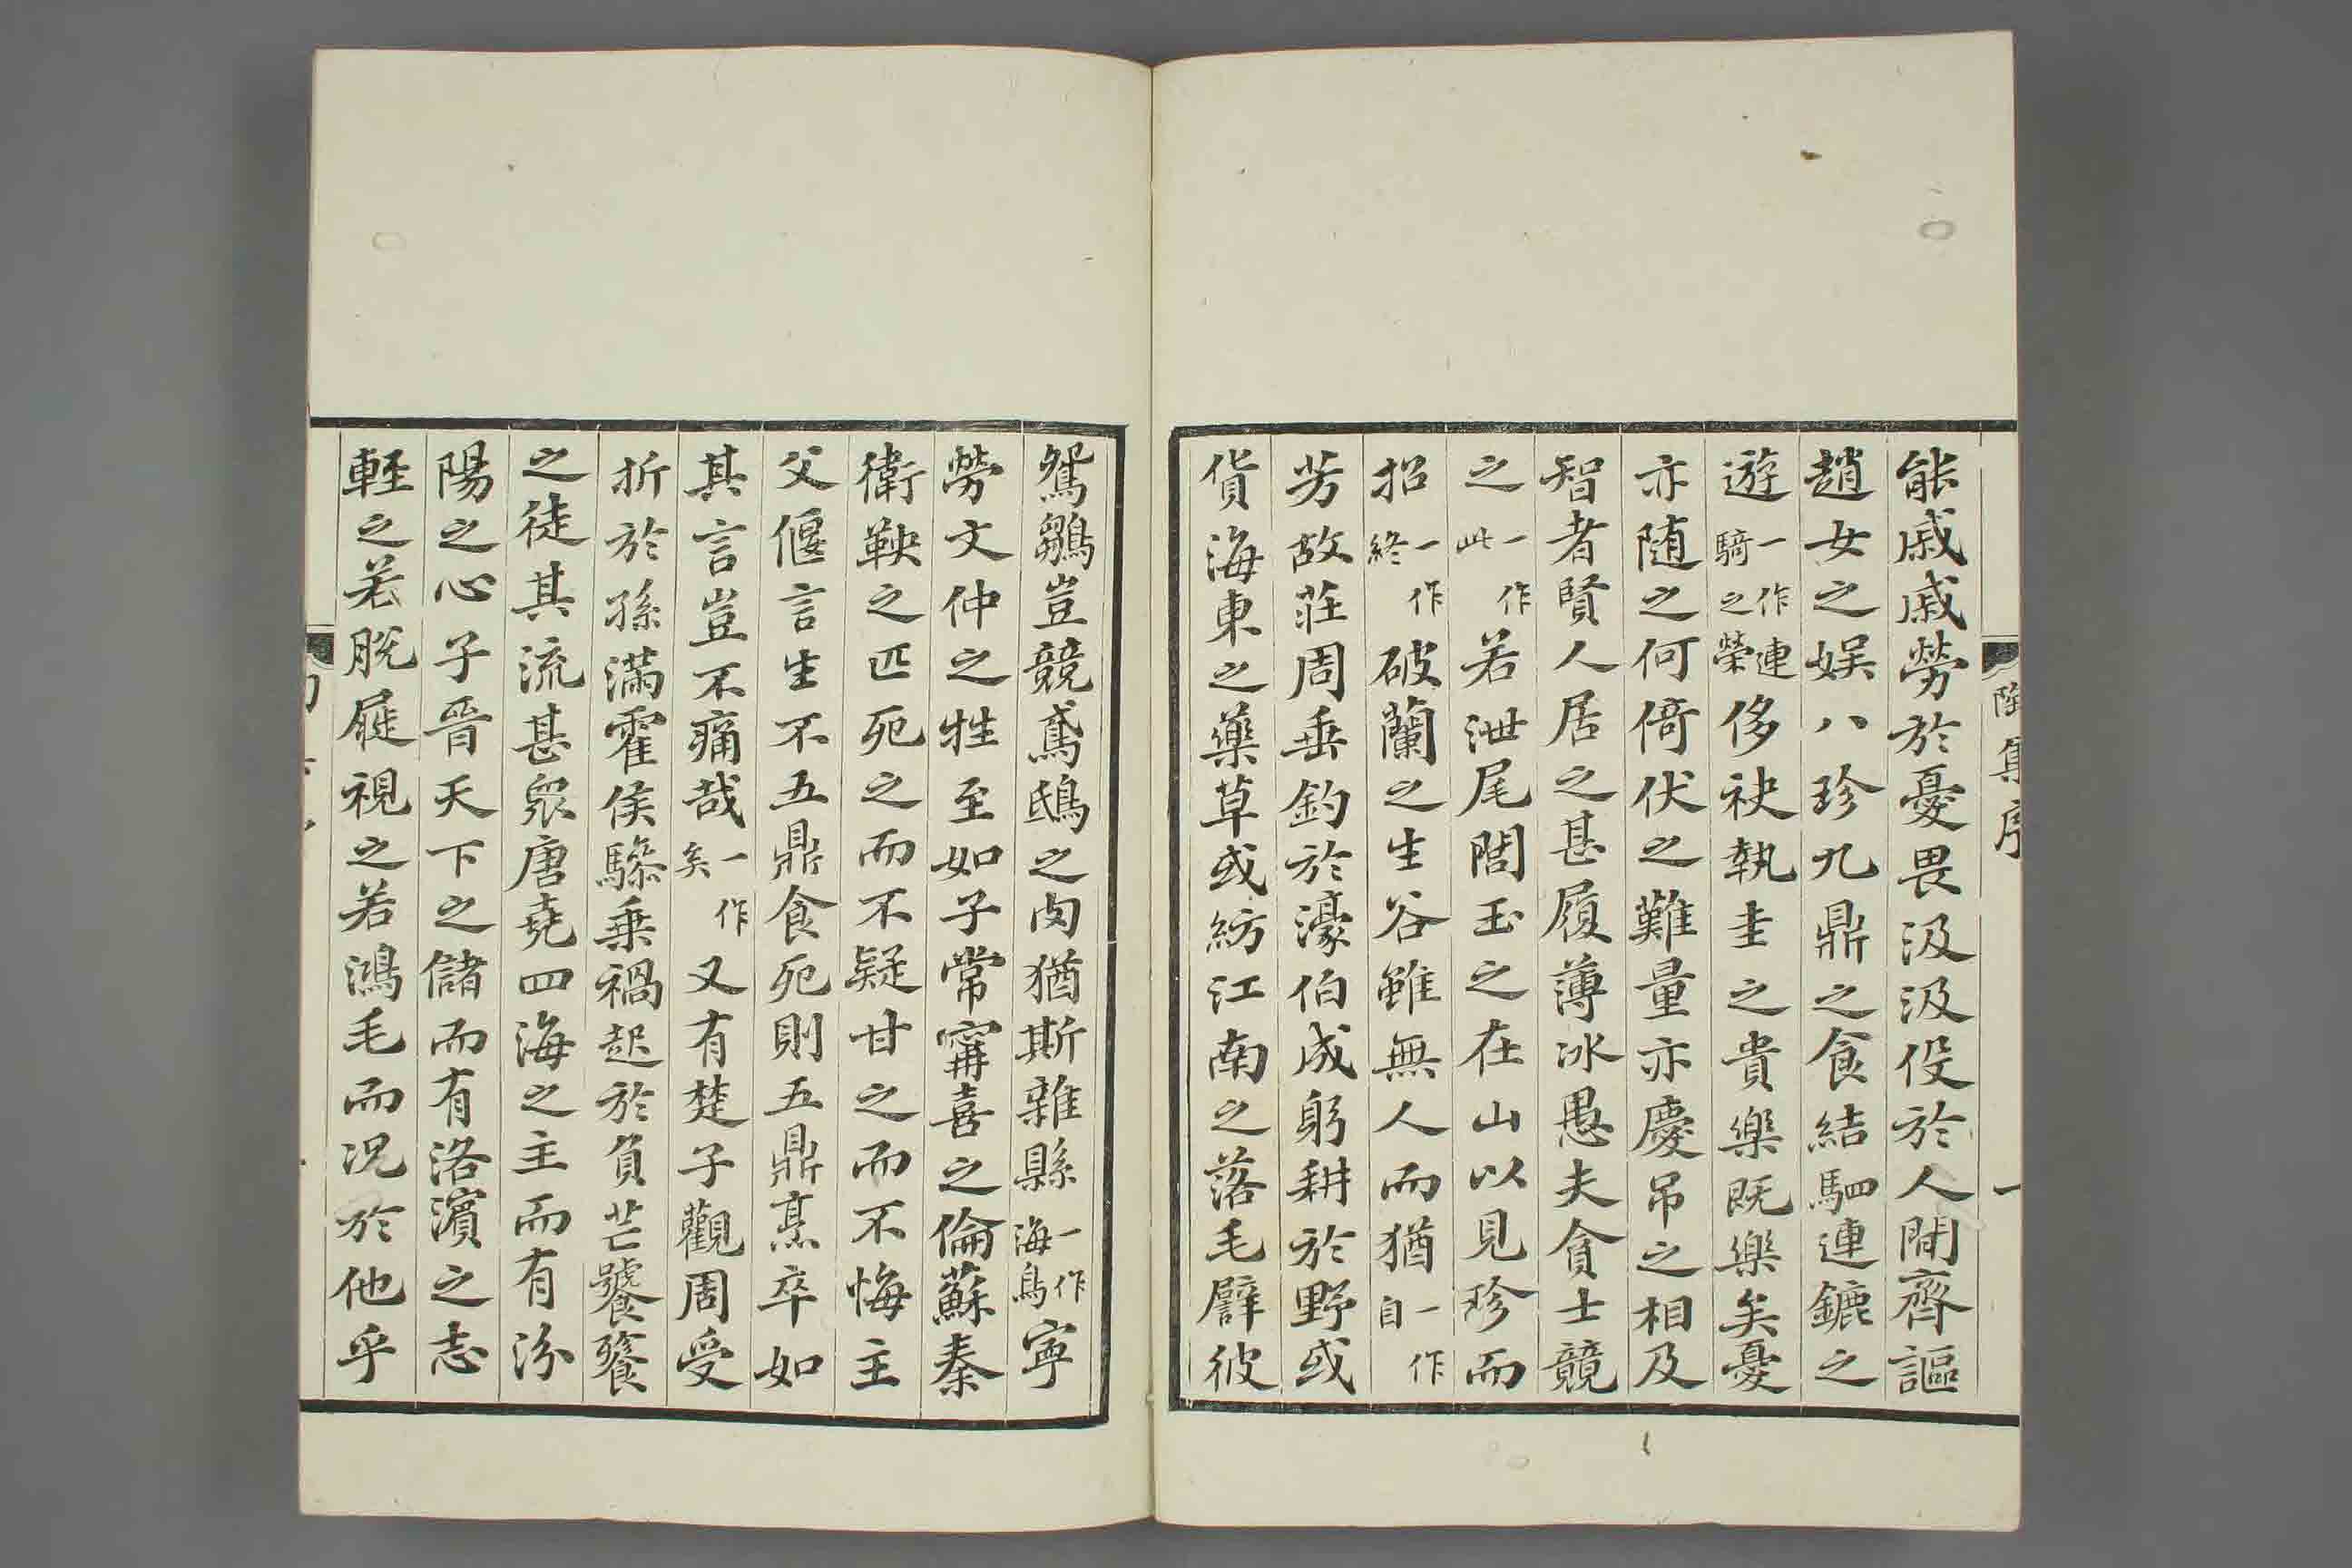 能戚戚勞於憂畏汲汲役於人間齊謳
趙女之娱八珍九鼎之食結駟連鑣之
遊一作連騎之榮侈袂執圭之貴樂既樂矣憂
亦随之何倚伏之難量亦慶吊之相及
智者賢人居之甚履薄冰愚夫貪士競
之一作此若泄尾閭玉之在山以見珍而
招一作終破蘭之生谷雖無人而猶一作自
芳故莊周垂釣於濠伯成躬耕於野或
貨海東之藥草或紡江南之落毛譬彼
陶集序
一
鴛鶵豈競鳶鴟之肉猶斯雜縣一作海鳥寧
勞文仲之牲至如子常甯喜之倫蘇秦
衛鞅之匹死之而不疑甘之而不悔主
父偃言生不五鼎食死則五鼎烹卒如
其言豈不痛哉一作矣又有楚子觀周受
折於孫滿霍侯驂乗禍起於負芒饕餮
之徒其流甚衆唐堯四海之主而有汾
陽之心子晉天下之儲而有洛濱之志
輕之若脫屣視之若鴻毛而况於他乎